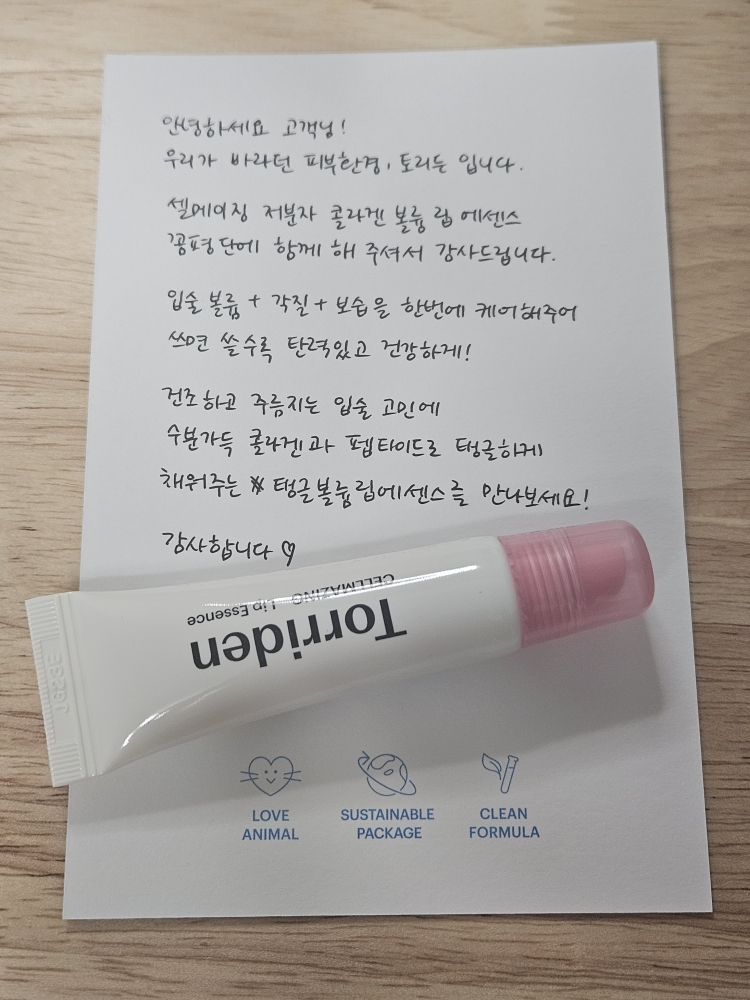 안녕하세요 고객님!
우리가 바라던 피부환경, 토리든 입니다.
셀메이징 저분자 콜라겐 볼륨 립 에센스
꼼평단에 함께 해 주셔서 감사드립니다.
입술 볼륨 + 각질 + 보습을 한번에 케어해주어
쓰면 쓸수록 탄력있고 건강하게!
건조하고 주름지는 입술 고민에
수분가득 콜라겐과 펩타이드로 탱글하게
채워주는 탱글볼륨립에센스를 만나보세요!
감사합니다 ♡
Torriden
CELLMAZING Lip Essence
LOVE ANIMAL
SUSTAINABLE PACKAGE
CLEAN FORMULA